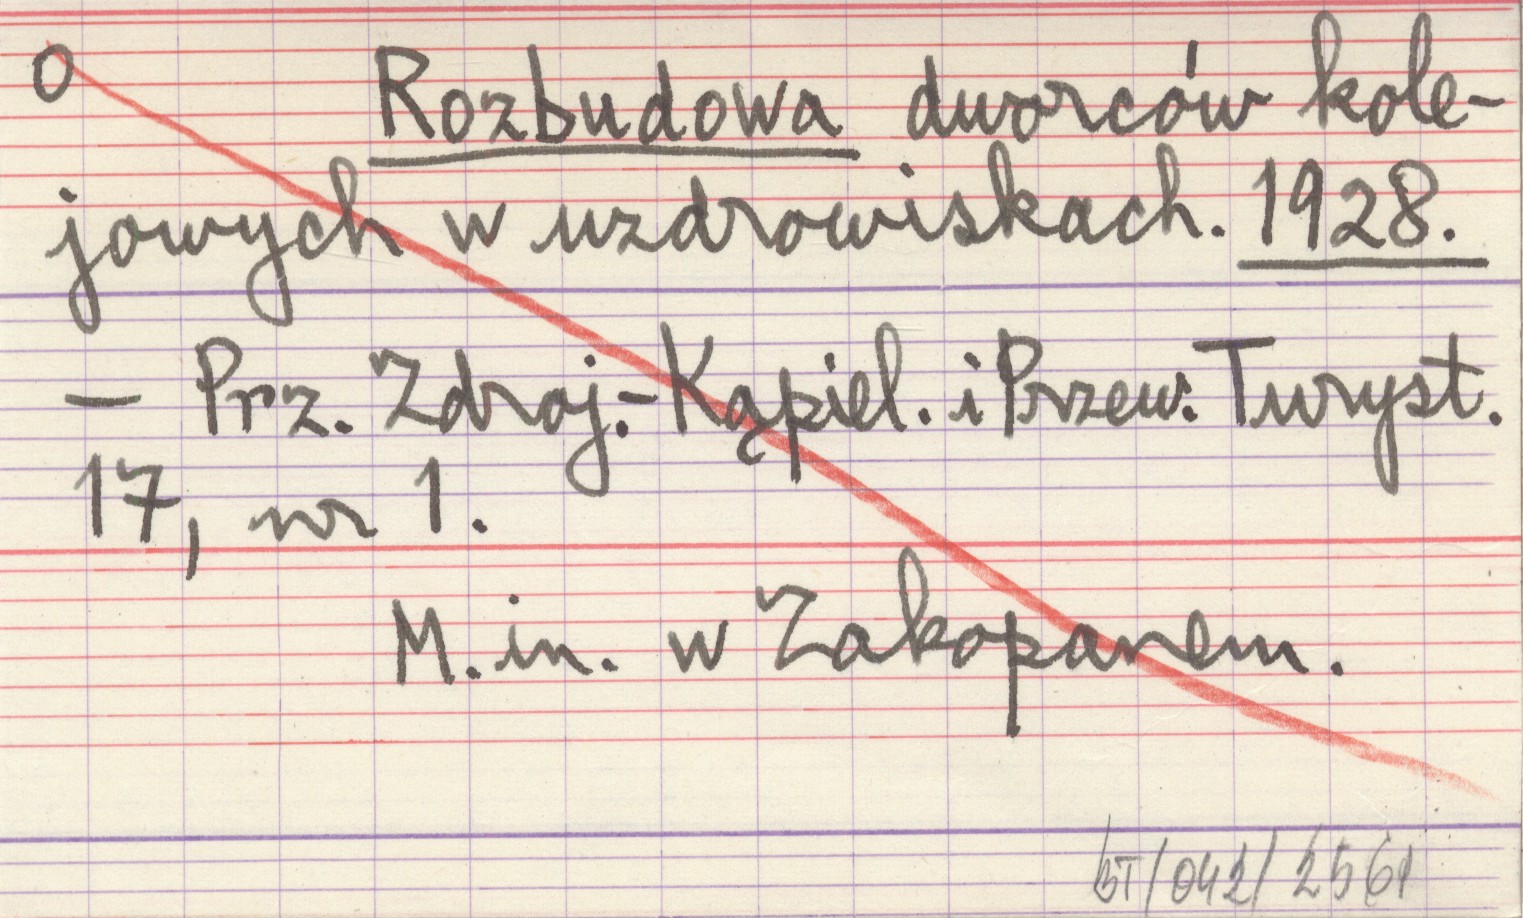 O Rozbudowa dworców kole-
jowych w uzdrowiskach. 1928.
— Prz. Zdroj.-Kąpiel. i Przew. Turyst.
17, nr 1.
M.in. w Zakopanem.
BT/042/2561